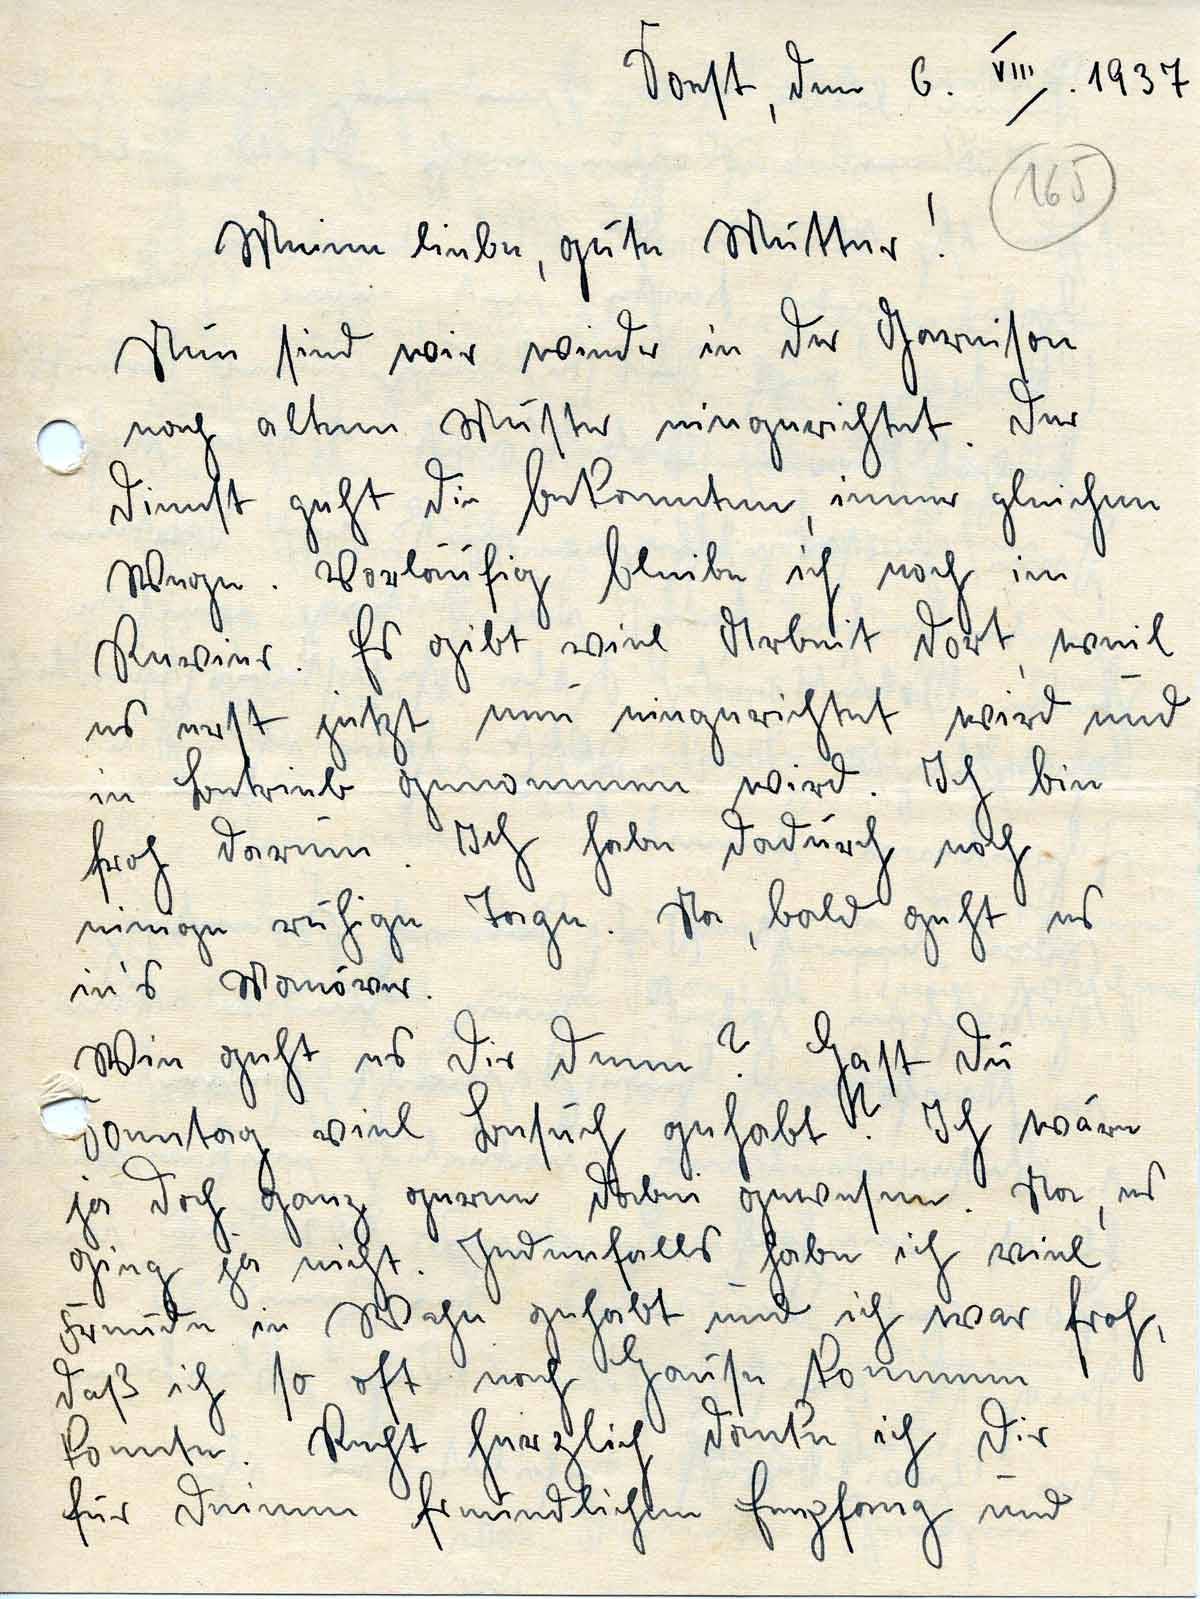 Soest, den 6. VIII. 1937
165
Meine liebe, gute Mutter!
Nun sind wir wieder in der Garnison
nach altem Muster eingerichtet. Der
Dienst geht die bekannten, immer gleichen
Wege. Vorläufig bleibe ich noch im
Revier. Es gibt viel Arbeit dort, weil
es erst jetzt neu eingerichtet wird und
in Betrieb genommen wird. Ich bin
froh darum. Ich habe dadurch noch
einige ruhige Tage. Na, bald geht es
in's Manöver.
Wie geht es Dir denn? Hast Du
Sonntag viel Besuch gehabt? Ich wäre
ja doch ganz gerne dabei gewesen. Na, es
ging ja nicht. Jedenfalls habe ich viel
Freude in Wahn gehabt und ich war froh,
daß ich so oft nach Hause kommen
konnte. Recht herzlich danke ich Dir
für Deinen freundlichen Empfang und